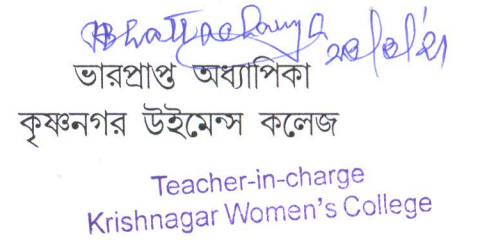 Bhattacharya
ভারপ্রাপ্ত অধ্যাপিকা
কৃষ্ণনগর উইমেন্স কলেজ
Teacher-in-charge
Krishnagar Women's College